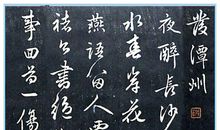 發潭州
夜醉長沙
水春岸花
燕語留人賈
褚公書絕
事回首一傷